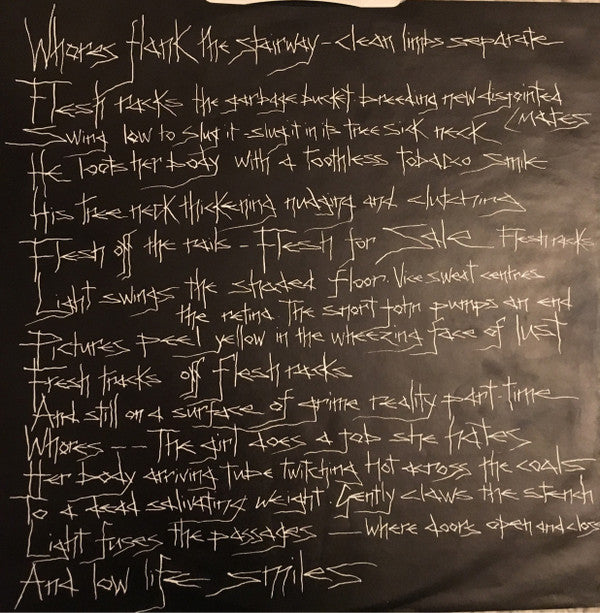 Whores flank the stairway - clean limbs separate
Flesh racks the garbage bucket breeding new disjointed
mates
Swing low to slug it - slug it in its tree sick neck
He loots her body with a toothless tobacco smile
His tree-neck thickening nudging and clutching
Flesh off the rails - Flesh for Sale Flesh racks
Light swings the shaded floor. Vice sweat centres
the retina. The short John pumps an end
Pictures peel yellow in the wheezing face of lust
Fresh tracks off flesh racks
And still on a surface of grime reality part-time
Whores -- The girl does a job she hates
Her body arriving tube twitching Hot across the coals
To a dead salivating weight. Gently claws the stench
Light fuses the passages - where doors open and close
And low life smiles